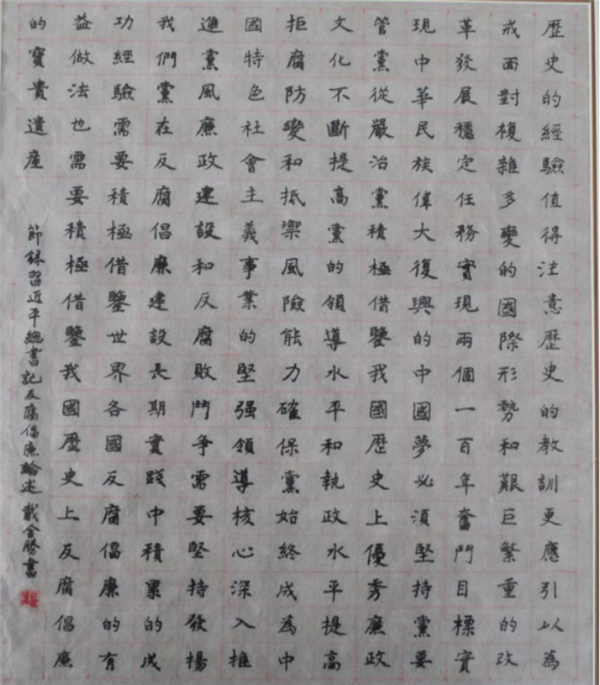 歷史的經驗值得注意歷史的教訓更應引以為
戒面對複雜多變的國際形勢和艱巨繁重的改
革發展穩定任務實現兩個一百年奮鬥目標實
現中華民族偉大復興的中國夢必須堅持黨要
管黨從嚴治黨積極借鑒我國歷史上優秀廉政
文化不斷提高黨的領導水平和執政水平提高
拒腐防變和抵禦風險能力確保黨始終成為中
國特色社會主義事業的堅强領導核心深入推
進黨風廉政建設和反腐敗鬥争需要堅持發揚
我們黨在反腐倡廉建設長期實踐中積累的成
功經驗需要積極借鑒世界各國反腐倡廉的有
益做法也需要積極借鑒我國歷史上反腐倡廉
的寶貴遺産
節錄習近平總書記反腐倡廉論述 戴金勝書